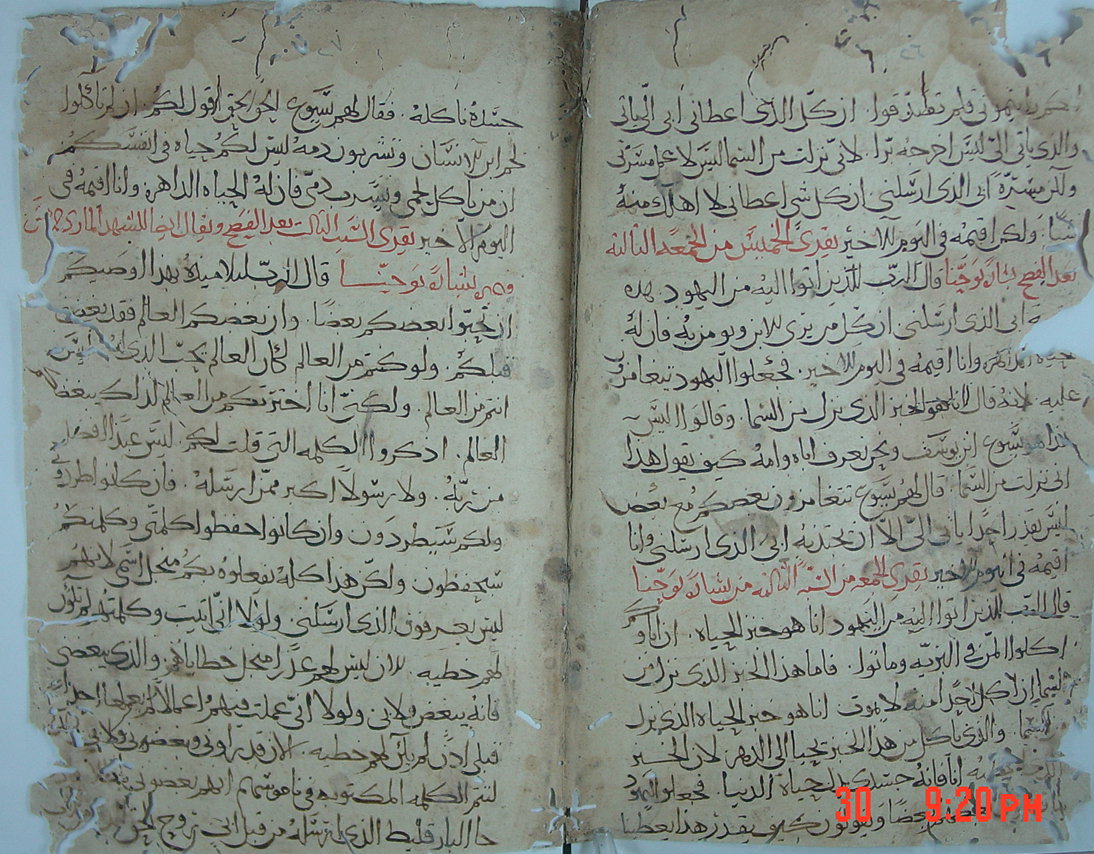 ان كل الذي اعطاني ابي الي ياتي
والذي ياتي الي ليس اخرجه برا. لاني نزلت من السما ليس لاعمل مسرتي
ولكن مسرة الذي ارسلني ان كل شي اعطاني لا اهلك منه
شيا. ولكن اقيمه في اليوم الاخير يقرى الخميس من الجمعه الثالثه
بعد الفصح بشارة يوحنا قال الرب للذين اتوا اليه من اليهود هذه
ابي الذي ارسلني ان كل من يرى الابن ويومن به فان له
وانا اقيمه في اليوم الاخير. فجعلوا اليهود
عليه لانه قال انا هو الخبز الذي نزل من السما وقالوا اليس
هذا هو يسوع ابن يوسف ونحن نعرف اباه وامه كيف يقول هذا
اني نزلت من السما. قال لهم يسوع بعضكم مع بعض
ليس يقدر احدا ياتي الي الا ان يجتذبه ابي الذي ارسلني وانا
اقيمه في اليوم الاخير يقرى الجمعه من بشارة يوحنا
قال الرب للذين اتوا اليه من اليهود انا هو خبز الحياه. ان اباوكم
اكلوا المن في البريه وماتوا. فاما هذا الخبز الذي نزل من
السما ان اكل احدا منه لا يموت انا هو خبز الحياه الذي نزل
من السما. والذي ياكل من هذا الخبز يحيا الى الدهر لان الخبز
انا فانه جسدي حياة الدنيا فجعلوا اليهود
بعضا ويقولون كيف يقدر هذا يعطينا
جسده ناكله. فقال لهم يسوع الحق الحق اقول لكم ان لم تاكلوا
لحم ابن الانسان وتشربون دمه ليس لكم حياه في انفسكم
ان من ياكل لحمي ويشرب دمي فان له الحياه الداهره وانا اقيمه في
اليوم الاخير يقرى السبت الثالث بعد الفصح ويقال ايضا للشهيد
بشارة يوحنا قال الرب لتلاميذه بهذا اوصيكم
ان تحبوا بعضكم بعضا. وان بغضكم العالم فقد بغضني
قبلكم. ولو كنتم من العالم لكان العالم يحب الذي
انتم من العالم. ولكني انا اخترتكم من العالم لذلك يبغضكم
العالم. اذكروا الكلمه التي قلت لكم. ليس عبدا افضل
من ربه. ولا رسولا اكبر ممن ارسله. فان كانوا اطردوني
ولكم سيطردون وان كانوا حفظوا كلمتي وكلمتكم
سيحفظون ولكن هذا كله يفعلوه بكم من اجل اسمي لانهم
ليس يعرفون الذي ارسلني. ولولا اني اتيت وكلمتهم لم تكون
لهم خطيه. الان ليس لهم عذرا من اجل خطاياهم والذي يبغضني
فانه يبغض ولابي ولولا اني عملت فيهم اعمالا لم يعملها احدا
قبلي اذن لم يكن لهم خطيه الان قد راوني وبغضوني ولابي
لتتم الكلمه المكتوبه في ناموسهم انهم بغضوني
جا البارقليط الذي انا ارسله من قبل ابي روح الحق
30 9:20 PM